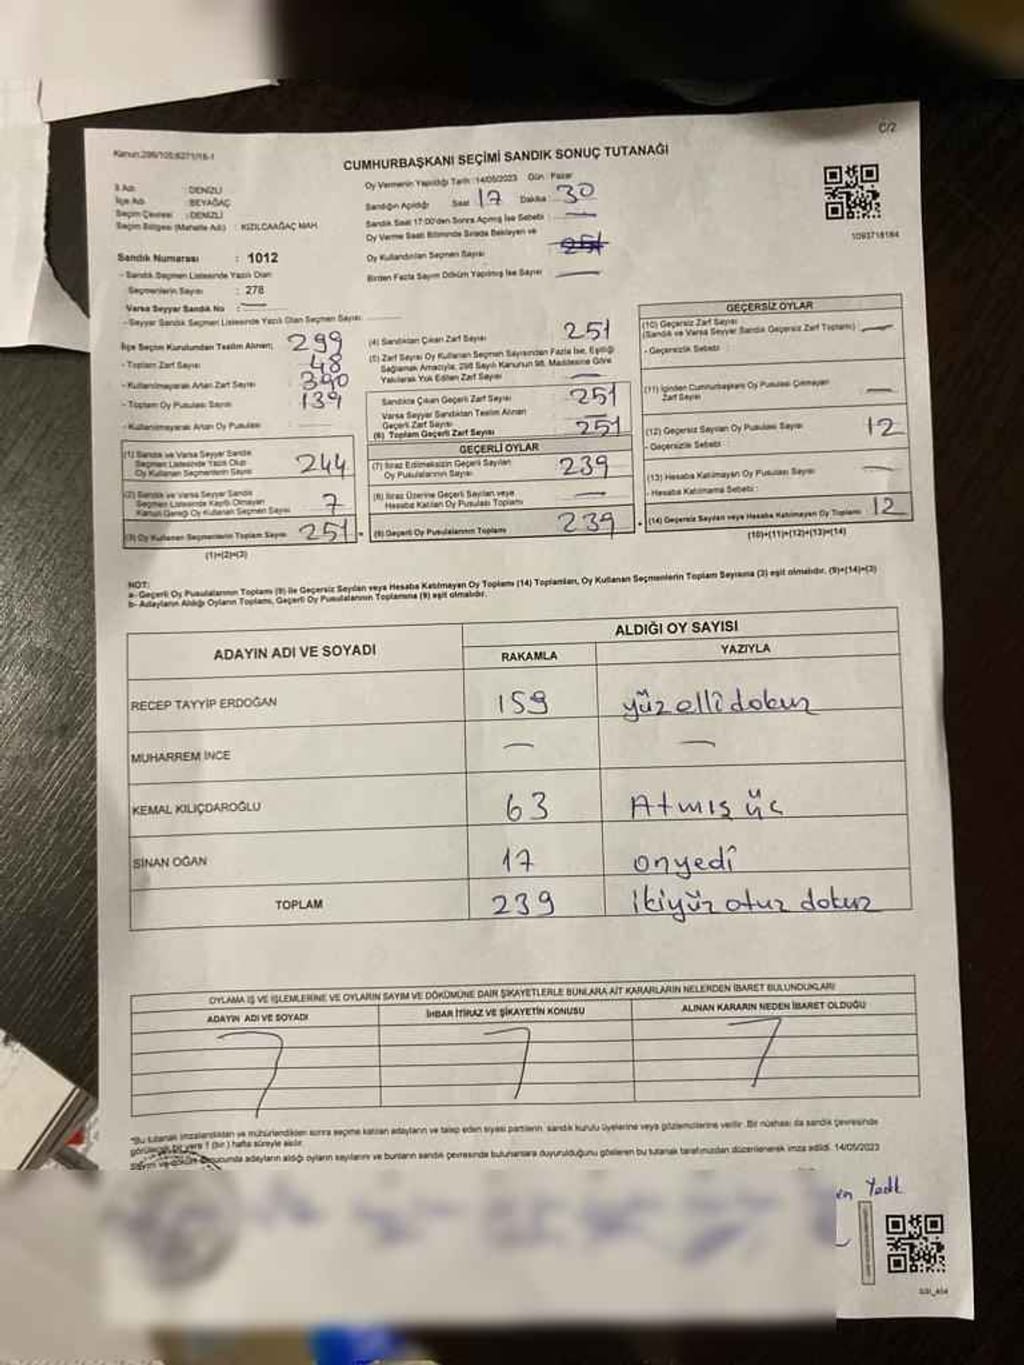 Kanun:298/105;6271/16-1
C/2
CUMHURBAŞKANI SEÇİMİ SANDIK SONUÇ TUTANAĞI
İl Adı : DENİZLİ
İlçe Adı : BEYAĞAÇ
Seçim Çevresi : DENİZLİ
Seçim Bölgesi (Mahalle Adı) : KIZILCAAĞAÇ MAH.
Oy Vermenin Yapıldığı Tarih :14/05/2023 Gün : Pazar
Sandığın Açıldığı Saat : 17 Dakika : 30
Sandık Saat 17:00'den Sonra Açılmış İse Sebebi : —
Oy Verme Saati Bitiminde Sırada Bekleyen ve
Oy Kullandırılan Seçmen Sayısı : 251
Birden Fazla Sayım Döküm Yapılmış İse Sayısı : —
1093718184
Sandık Numarası : 1012
- Sandık Seçmen Listesinde Yazılı Olan
Seçmenlerin Sayısı : 278
Varsa Seyyar Sandık No : —
- Seyyar Sandık Seçmen Listesinde Yazılı Olan Seçmen Sayısı
İlçe Seçim Kurulundan Teslim Alınan; 299
- Toplam Zarf Sayısı 48
- Kullanılmayarak Artan Zarf Sayısı 390
- Toplam Oy Pusulası Sayısı 139
- Kullanılmayarak Artan Oy Pusulası
(1) Sandık ve Varsa Seyyar Sandık
Seçmen Listesinde Yazılı Olup
Oy Kullanan Seçmenlerin Sayısı 244
(2) Sandık ve Varsa Seyyar Sandık
Seçmen Listesinde Kayıtlı Olmayan
Kanun Gereği Oy Kullanan Seçmen Sayısı 7
(3) Oy Kullanan Seçmenlerin Toplam Sayısı 251
(1)+(2)=(3)
(4) Sandıktan Çıkan Zarf Sayısı 251
(5) Zarf Sayısı Oy Kullanan Seçmen Sayısından Fazla İse, Eşitliği
Sağlamak Amacıyla, 298 Sayılı Kanunun 98. Maddesine Göre
Yakılarak Yok Edilen Zarf Sayısı —
Sandıkta Çıkan Geçerli Zarf Sayısı 251
Varsa Seyyar Sandıktan Teslim Alınan
Geçerli Zarf Sayısı —
(6) Toplam Geçerli Zarf Sayısı 251
GEÇERLİ OYLAR
(7) İtiraz Edilmeksizin Geçerli Sayılan
Oy Pusulalarının Sayısı 239
(8) İtiraz Üzerine Geçerli Sayılan veya
Hesaba Katılan Oy Pusulaları Toplamı —
(9) Geçerli Oy Pusulalarının Toplamı 239
GEÇERSİZ OYLAR
(10) Geçersiz Zarf Sayısı
(Sandık ve Varsa Seyyar Sandık Geçersiz Zarf Toplamı) —
- Geçersizlik Sebebi :
(11) İçinden Cumhurbaşkanı Oy Pusulası Çıkmayan
Zarf Sayısı —
(12) Geçersiz Sayılan Oy Pusulası Sayısı 12
- Geçersizlik Sebebi :
(13) Hesaba Katılmayan Oy Pusulası Sayısı —
- Hesaba Katılmama Sebebi :
(14) Geçersiz Sayılan veya Hesaba Katılmayan Oy Toplamı 12
(10)+(11)+(12)+(13)=(14)
NOT:
a- Geçerli Oy Pusulalarının Toplamı (9) ile Geçersiz Sayılan veya Hesaba Katılmayan Oy Toplamı (14) Toplamları, Oy Kullanan Seçmenlerin Toplam Sayısına (3) eşit olmalıdır. (9)+(14)=(3)
b- Adayların Aldığı Oyların Toplamı, Geçerli Oy Pusulalarının Toplamına (9) eşit olmalıdır.
ADAYIN ADI VE SOYADI
ALDIĞI OY SAYISI
RAKAMLA YAZIYLA
RECEP TAYYİP ERDOĞAN 159 yüz elli dokuz
MUHARREM İNCE — —
KEMAL KILIÇDAROĞLU 63 Atmış üç
SİNAN OĞAN 17 onyedi
TOPLAM 239 ikiyüz otuz dokuz
OYLAMA İŞ VE İŞLEMLERİNE VE OYLARIN SAYIM VE DÖKÜMÜNE DAİR ŞİKAYETLERLE BUNLARA AİT KARARLARIN NELERDEN İBARET BULUNDUKLARI
ADAYIN ADI VE SOYADI İHBAR İTİRAZ VE ŞİKAYETİN KONUSU ALINAN KARARIN NEDEN İBARET OLDUĞU
*Bu tutanak imzalandıktan ve mühürlendikten sonra seçime katılan adayların ve talep eden siyasi partilerin sandık kurulu üyelerine veya gözlemcilerine verilir. Bir nüshası da sandık çevresinde
görülecek bir yere 1 (bir) hafta süreyle asılır.
sonucunda adayların aldığı oyların sayılarını ve bunların sandık çevresinde bulunanlara duyurulduğunu gösteren bu tutanak tarafımızdan düzenlenerek imza edildi. 14/05/2023